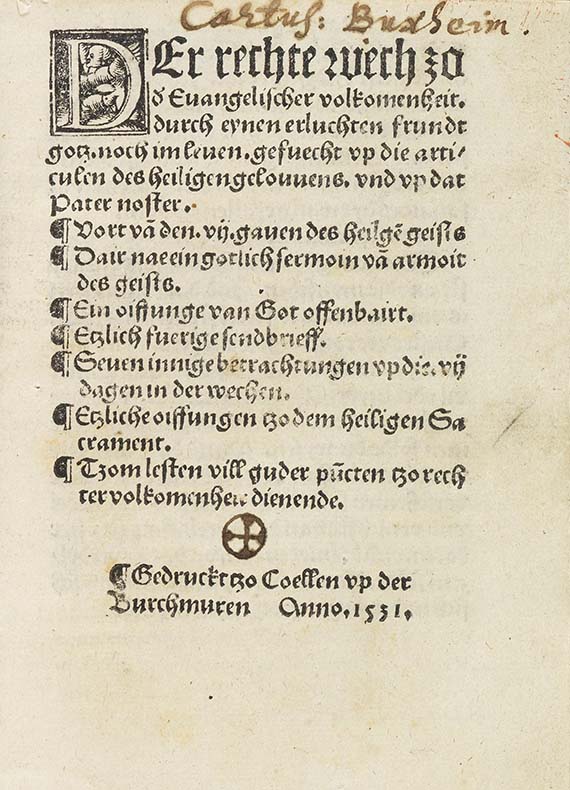 Cartus: Buxheim.
DEr rechte wech zo
d' Euangelischer volkomenheit.
durch eynen erluchten frundt
gotz. noch im leven. gesuecht vp die arti⸗
culen des heiligen gelouvens. vnd vp dat
Pater noster.
¶ Vort vā den. vij. gauen des heilgē geists
¶ Dair nae ein gotlich sermoin vā armoit
des geists.
¶ Ein oiffunge van Got offenbairt.
¶ Etzlich fuerige sendbrieff.
¶ Seuen innige betrachtungen vp die. vij
dagen in der wechen.
¶ Etzliche oiffungen tzo dem heiligen Sa
crament.
¶ Tzom lesten vill guder pūcten tzo rech
ter volkomenheit dienende.
¶ Gedruckt tzo Coellen vp der
Burchmuren Anno. 1531.